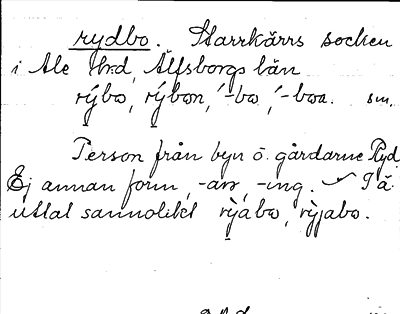 rydbo. Starrkärrs socken
i Ale hrd, Älfsborgs län
rýbo, rýbon, ́-bo, ́-boa. sm.
Person från byn o. gårdarne Ryd.
Ej annan form, -are, -ing. På
uttal sannolikt